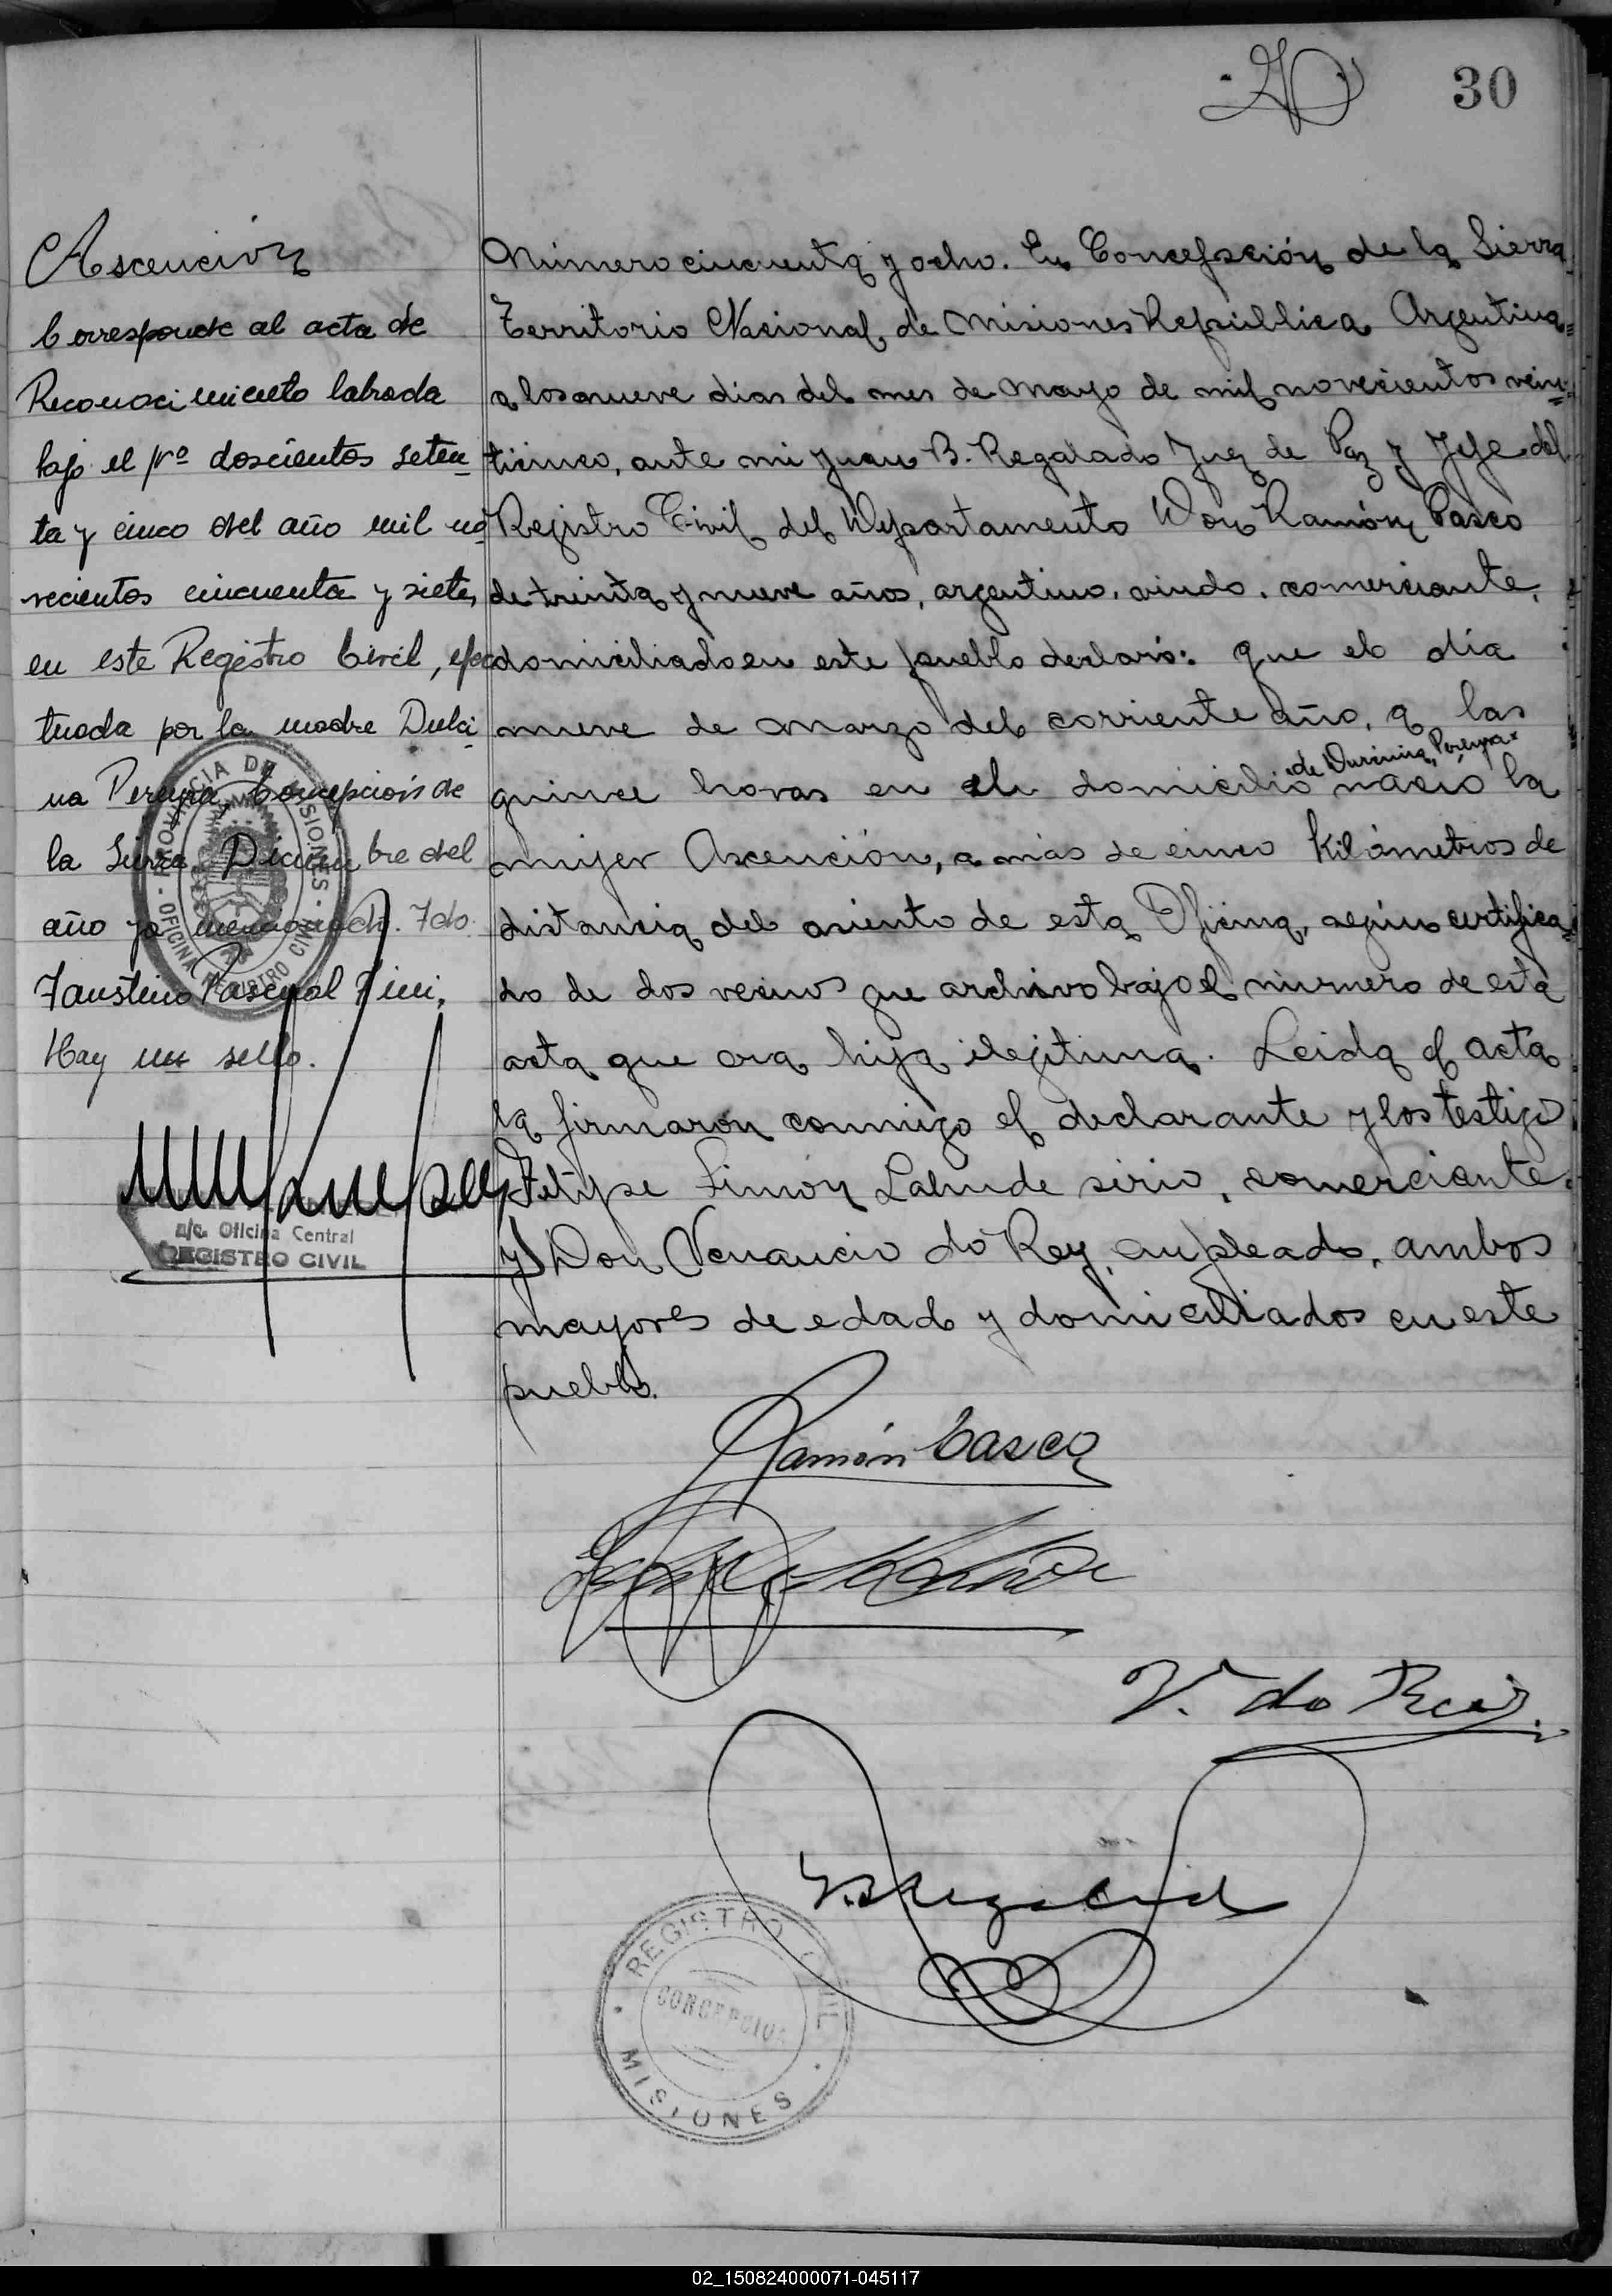 30
Ascención
Corresponde al acta de
Reconocimiento labrada
bajo el Nº doscientos seten
ta y cinco del año mil no
vecientos cincuenta y siete,
en este Registro Civil, efec
tuada por la madre Dulci
na Pereyra, Concepción de
la Sierra, Diciembre del
año ya mencionado. Fdo.
Faustino Pascual Fini,
Hay un sello.
PROVINCIA DE MISIONES
OFICINA REGISTRO CIVIL
a/c. Oficina Central
REGISTRO CIVIL
Número cincuenta y ocho. En Concepción de la Sierra
Territorio Nacional de Misiones República Argentina
a los nueve dias del mes de Mayo de mil novecientos vein
ticinco, ante mi Juan B. Regalado Juez de Paz y Jefe del
Rejistro Civil del Departamento Don Ramón Casco
de treinta y nueve años, argentino, viudo, comerciante,
domiciliado en este pueblo declaró: que el día
nueve de marzo del corriente año, a las
quince horas en el domicilio de Durcinia Pereyra nació la
mujer Ascención, a más de cinco Kilómetros de
distancia del asiento de esta Oficina, según certifica
do de dos vecinos que archivo bajo el número de esta
acta que era hija ilejitima. Leida el acta
la firmaron conmigo el declarante y los testigo
Felipe Simón Lahude sirio, comerciante,
y Don Venancio do Rey, empleado, ambos
mayores de edad y domiciliados en este
pueblo.
Ramón Casco
V. do Rey
J.B. Regalado
REGISTRO CIVIL
CONCEPCION
MISIONES
02_150824000071-045117